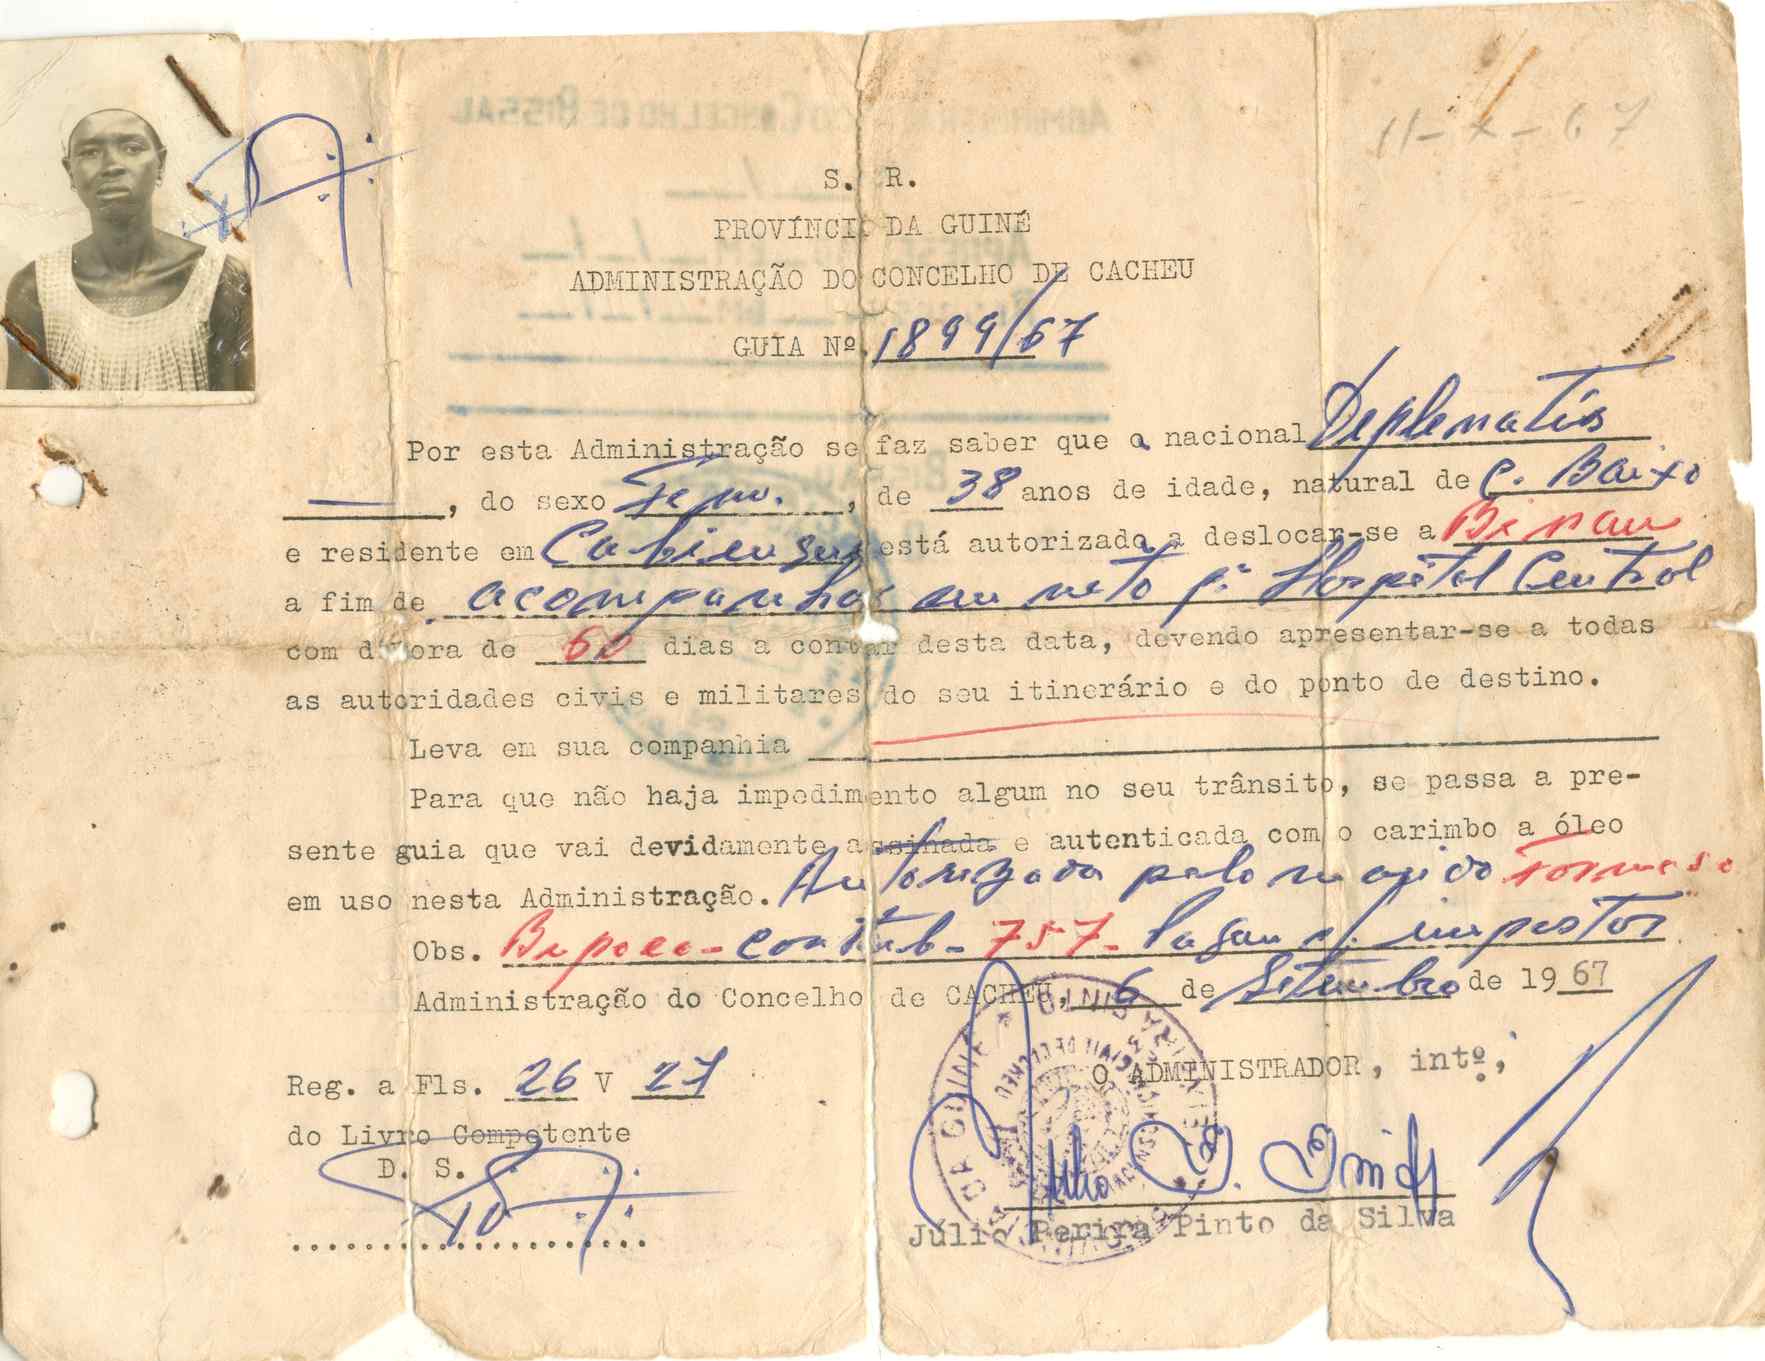 11-X-67
S. R.
PROVÍNCIA DA GUINÉ
ADMINISTRAÇÃO DO CONCELHO DE CACHEU
GUIA Nº 1899/67
Por esta Administração se faz saber que a nacional
, do sexo Fem. , de 38 anos de idade, natural de C. Baixo
e residente em está autorizada a deslocar-se a Bissau
a fim de acompanhar um neto pª Hospital Central
com demora de 60 dias a contar desta data, devendo apresentar-se a todas
as autoridades civis e militares do seu itinerário e do ponto de destino.
Leva em sua companhia
Para que não haja impedimento algum no seu trânsito, se passa a pre-
sente guia que vai devidamente assinada e autenticada com o carimbo a óleo
em uso nesta Administração. Autorizada pelo marido
Obs. contrib- 757- impostos
Administração do Concelho de CACHEU, 6 de Setembro de 1967
O ADMINISTRADOR, intº,
Reg. a Fls. 26 V 27
do Livro Competente
D. S.
Júlio Perira Pinto da Silva